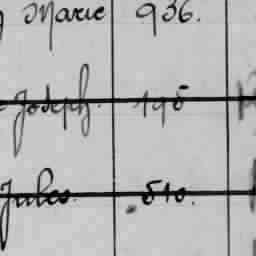 Marie 936.
Joseph 195
Jules. 510.